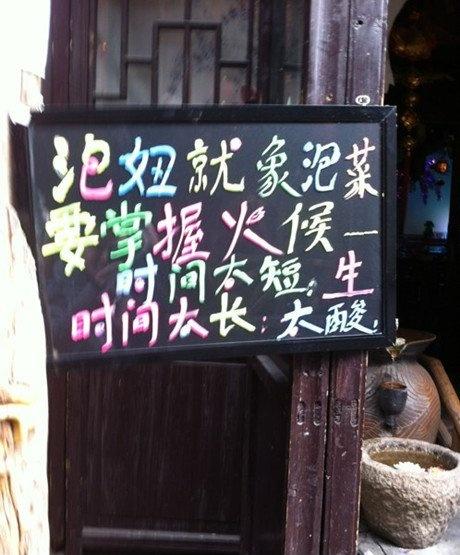 泡妞就象泡菜
要掌握火候一
时间太短:生
时间太长:太酸.